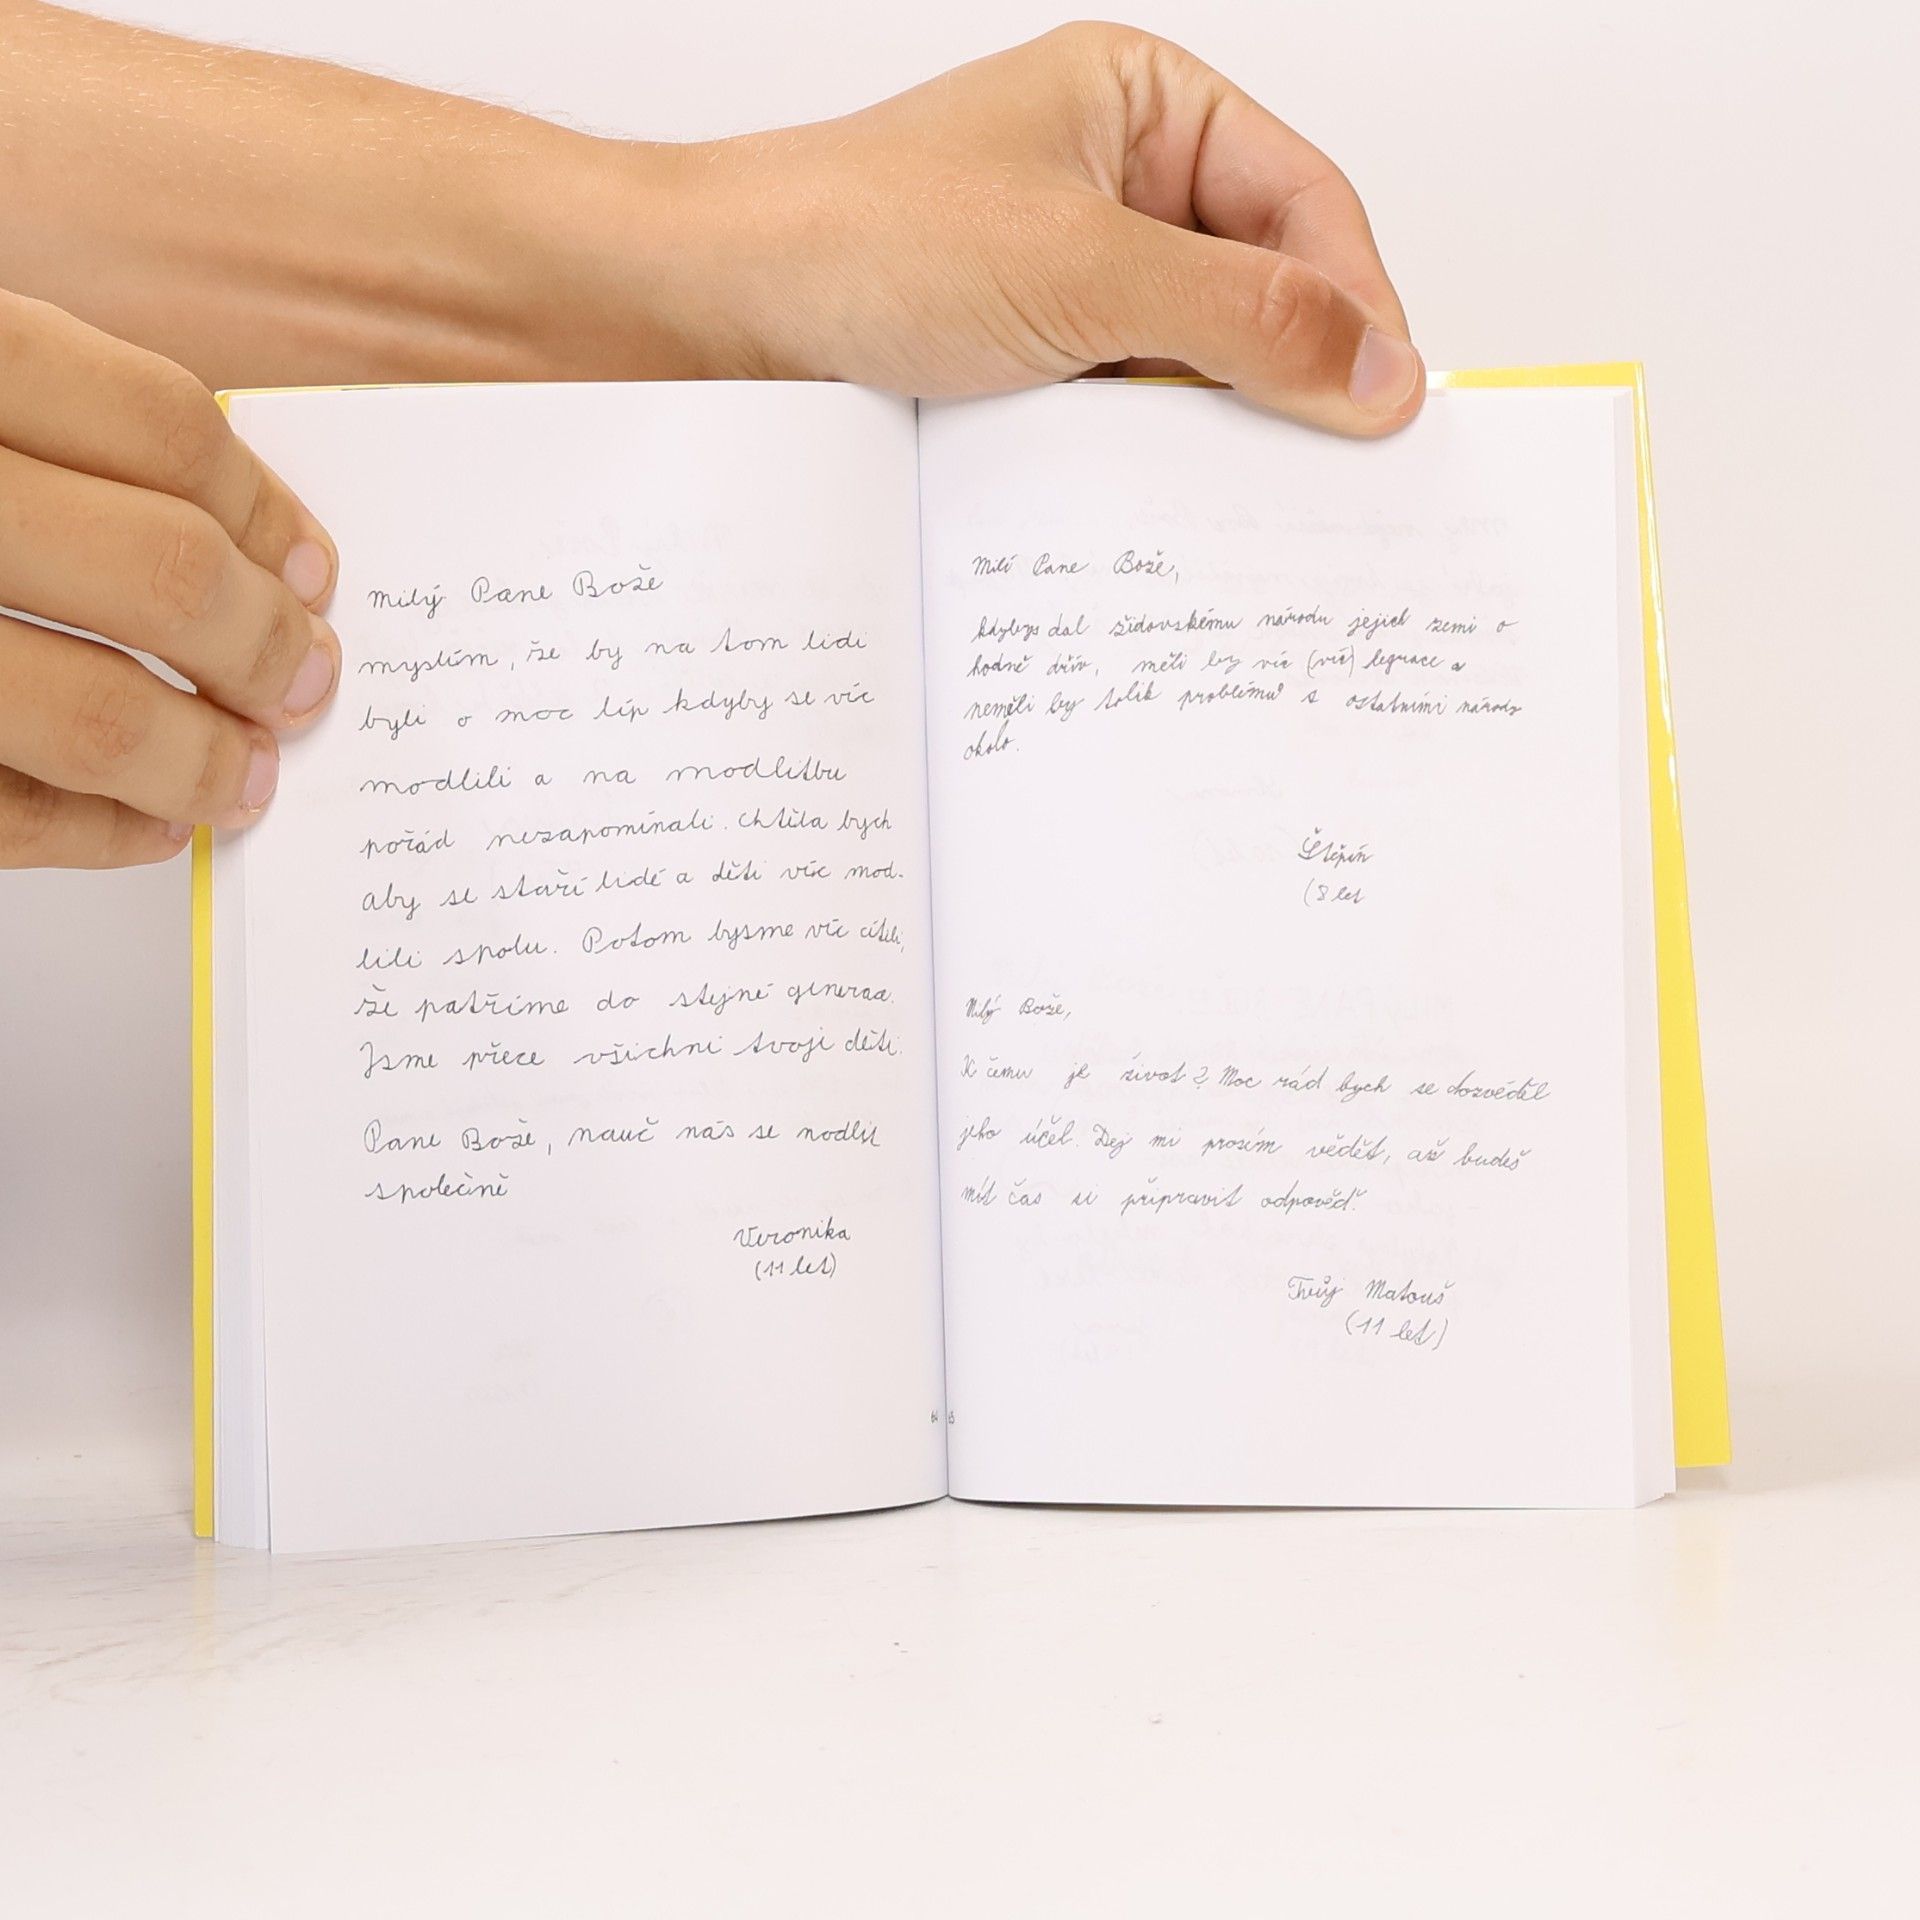 Milý Pane Bože
myslím, že by na tom lidi
byli o moc líp kdyby se víc
modlili a na modlitbu
pořád nezapomínali. Chtěla bych
aby se staří lidé a děti víc mod-
lili spolu. Potom bysme víc cítili,
že patříme do stejné generace.
Jsme přece všichni tvoji děti.
Pane Bože, nauč nás se modlit
společně
Veronika
(11 let)
64
Milí Pane Bože,
kdybys dal židovskému národu jejich zemi o
hodně dřív, měli by víc (víc) legrace a
neměli by tolik problémů s ostatními národy
okolo.
Štěpín
(8 let
Milý Bože,
K čemu je život? Moc rád bych se dozvěděl
jeho účel. Dej mi prosím vědět, až budeš
mít čas si připravit odpověď.
Tvůj Matouš
(11 let)
65